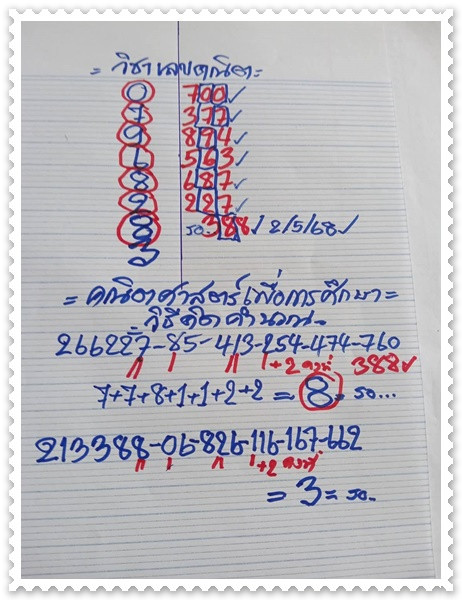 = วิชาเลขคณิต =
0 700 ✓
7 377 ✓
9 894 ✓
6 563 ✓
8 687 ✓
2 227 ✓
8 รอ.388 ✓ 2/5/68 ✓
3
= คณิตศาสตร์เพื่อการศึกษา =
วิธีคิดคำนวณ
266227-85-413-254-474-760
+2 คงที่ 388 ✓
7+7+8+1+1+2+2 = 8 = รอ...
213388-06-826-116-167-662
+2 คงที่
= 3 = รอ..